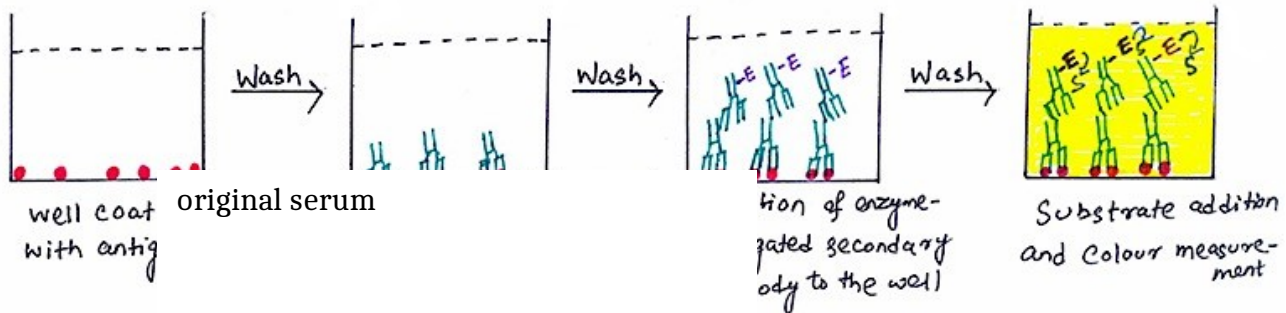 Wash
Wash
Wash
E
E
E
E
S
E
S
E
S
well coat
with antig
original serum
tion of enzyme-
gated secondary
ody to the well
Substrate addition
and Colour measure-
ment